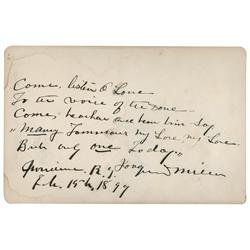 Come, listen O Love
To the voice of the Dove
Come, hearken and hear him say
"Many Tomorrows my Love, my Love.
But only one Today."
R. I. Joaquin Miller
Feb. 19th, 1897